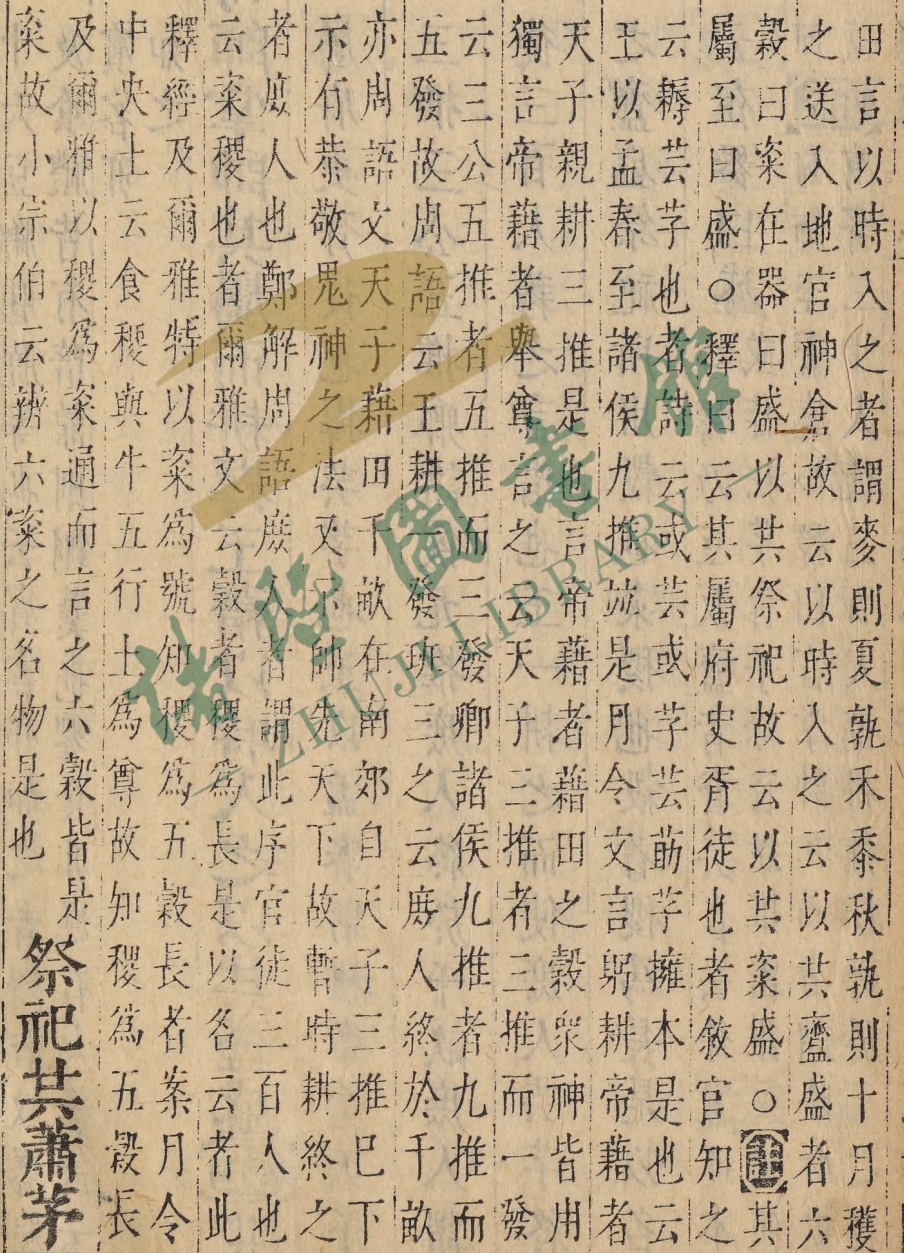 田言以時入之者謂麥則夏孰禾黍秋孰則十月穫
之送入地官神倉故云以時入之云以共齍盛者六
穀曰粢在器曰盛以共祭祀故云以共粢盛○注其
屬至曰盛○釋曰云其屬府史胥徒也者敘官知之
云耨芸芓也者詩云或芸或芓芸䓖芓擁本是也云
王以孟春至諸侯九推並是月令文言躬耕帝藉者
天子親耕三推是也言帝藉者藉田之穀衆神皆用
獨言帝藉者舉尊言之云天子三推者三推而一發
云三公五推者五推而三發卿諸侯九推者九推而
五發故周語云王耕一發班三之云庶人終於千畝
亦周語文天子藉田千畝在南郊自天子三推已下
示有恭敬鬼神之法又示帥先天下故暫時耕終之
者庶人也鄭解周語庶人者謂此序官徒三百人也
云粢稷也者爾雅文云穀者稷爲長是以名云者此
釋經及爾雅特以粢爲號知稷爲五穀長者案月令
中央土云食稷與牛五行土爲尊故知稷爲五穀長
及爾雅以稷爲粢通而言之六穀皆是
粢故小宗伯云辨六粢之名物是也
祭祀共蕭茅
諸暨圖書館
ZHUJI LIBRARY